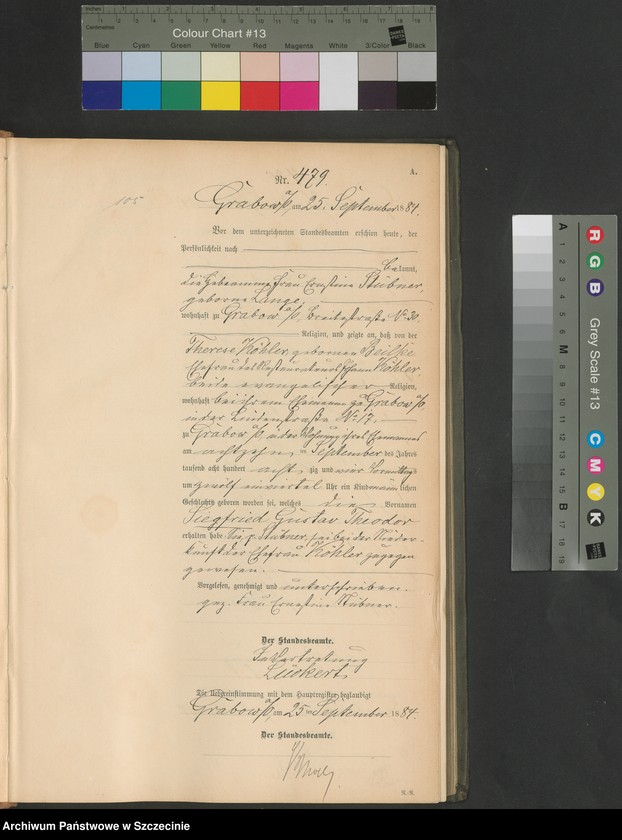 Colour Chart #13
Blue Cyan Green Yellow Red Magenta White 3/Color Black
Grey Scale #13
A 1 2 3 4 5 6 M 8 9 10 11 12 13 14 15 B 17 18 19
R G B
C M Y K
105
A.
Nr. 479.
Grabow a/O, am 25. September 1884.
Vor dem unterzeichneten Standesbeamten erschien heute, der
Persönlichkeit nach
bekannt,
die Hebeamme, Frau Ernstine Stübner,
geborne Lange,
wohnhaft zu Grabow a/O, Breitestraße No 30,
Religion, und zeigte an, daß von der
Therese Köhler, gebornen
Ehefrau des Restaurateurs Köhler
beide evangelischer Religion,
wohnhaft bei ihrem Ehemanne zu Grabow a/O,
in der Lindenstraße No 17,
zu Grabow a/O, in der Wohnung ihres Ehemannes
am achtzehn ten September des Jahres
tausend acht hundert acht zig und vier Vormittags
um zwölf einviertel Uhr ein Kind männlichen
Geschlechts geboren worden sei, welches die Vornamen
Siegfried Gustav Theodor
erhalten habe. Die p. Stübner sei bei der Nieder-
kunft der Ehefrau Köhler zugegen
gewesen.
Vorgelesen, genehmigt und unterschrieben.
gez. Frau Ernestine Stübner.
Der Standesbeamte.
In Vertretung
Lückert.
Die Uebereinstimmung mit dem Hauptregister beglaubigt
Grabow a/O, am 25ten September 1884.
Der Standesbeamte.
Archiwum Państwowe w Szczecinie